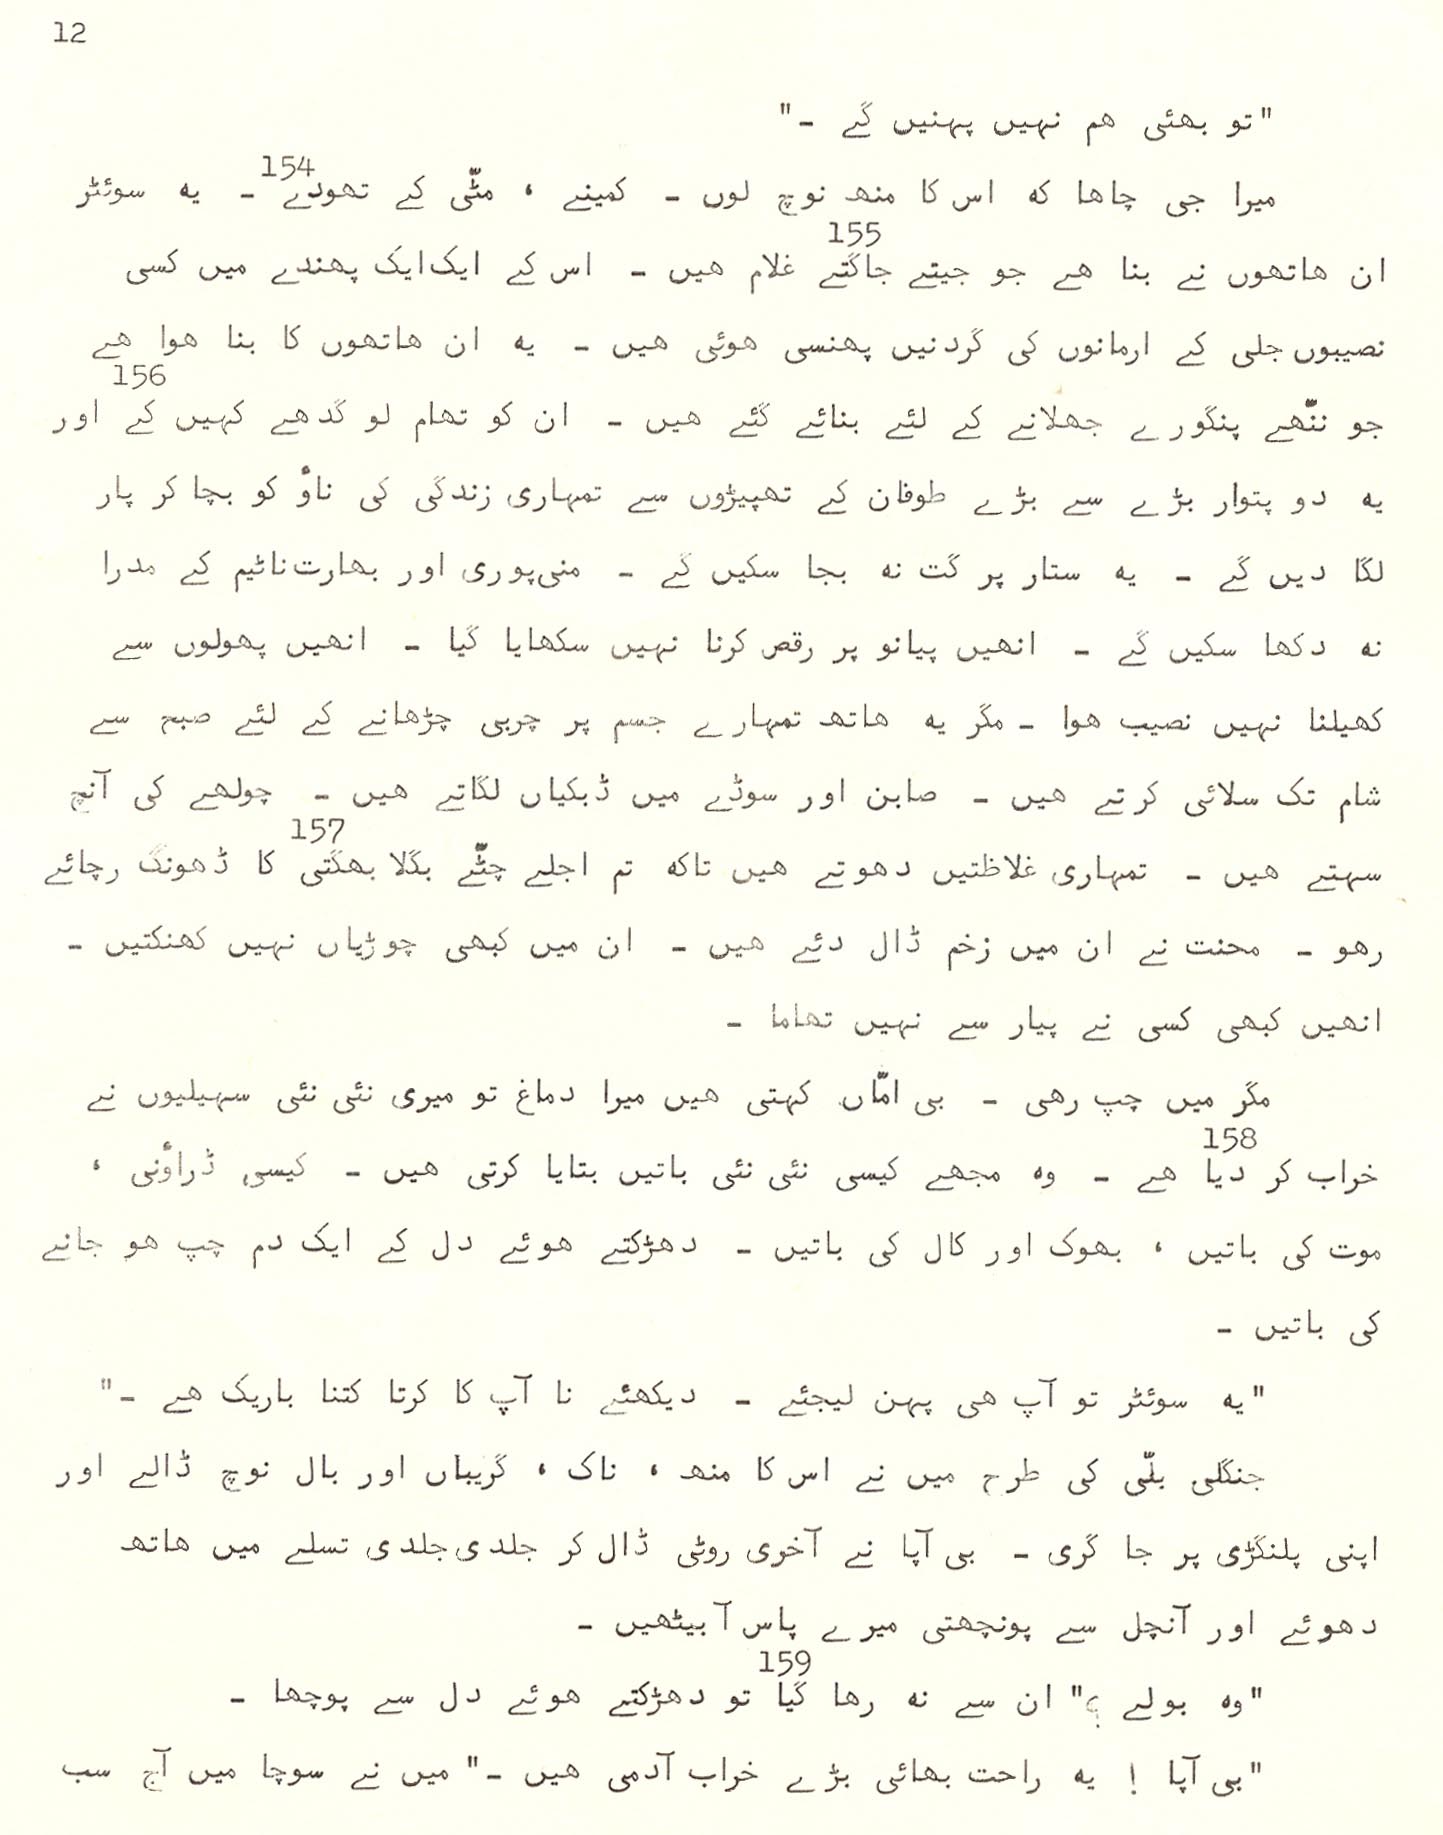 12
"تو بھئی ھم نہیں پہنیں گے ۔"
میرا جی چاھا کہ اس کا منھ نوچ لوں ۔ کمینے ، مٹّی کے تھودے 154 ۔ یہ سوئٹر
ان ھاتھوں نے بنا ھے جو جیتے جاگتے 155 غلام ھیں ۔ اس کے ایک ایک پھندے میں کسی
نصیبوں جلی کے ارمانوں کی گردنیں پھنسی ھوئی ھیں ۔ یہ ان ھاتھوں کا بنا ھوا ھے
جو ننّھے پنگورے جھلانے کے لئے بنائے گئے ھیں ۔ ان کو تھام لو گدھے کہیں کے 156 اور
یہ دو پتوار بڑے سے بڑے طوفان کے تھپیڑوں سے تمہاری زندگی کی ناؤ کو بچا کر پار
لگا دیں گے ۔ یہ ستار پر گت نہ بجا سکیں گے ۔ منی پوری اور بھارت ناٹیم کے مدرا
نہ دکھا سکیں گے ۔ انھیں پیانو پر رقص کرنا نہیں سکھایا گیا ۔ انھیں پھولوں سے
کھیلنا نہیں نصیب ھوا ۔ مگر یہ ھاتھ تمہارے جسم پر چربی چڑھانے کے لئے صبح سے
شام تک سلائی کرتے ھیں ۔ صابن اور سوڈے میں ڈبکیاں لگاتے ھیں ۔ چولھے کی آنچ
سہتے ھیں ۔ تمہاری غلاظتیں دھوتے ھیں تاکہ تم اجلے چٹّے بگلا بھگتی 157 کا ڈھونگ رچائے
رھو ۔ محنت نے ان میں زخم ڈال دئے ھیں ۔ ان میں کبھی چوڑیاں نہیں کھنکتیں ۔
انھیں کبھی کسی نے پیار سے نہیں تھاما ۔
مگر میں چپ رھی ۔ بی امّاں کہتی ھیں میرا دماغ تو میری نئی نئی سہیلیوں نے
خراب کر دیا 158 ھے ۔ وہ مجھے کیسی نئی نئی باتیں بتایا کرتی ھیں ۔ کیسی ڈراؤنی ،
موت کی باتیں ، بھوک اور کال کی باتیں ۔ دھڑکتے ھوئے دل کے ایک دم چپ ھو جانے
کی باتیں ۔
"یہ سوئٹر تو آپ ھی پہن لیجئے ۔ دیکھئے نا آپ کا کرتا کتنا باریک ھے ۔"
جنگلی بلّی کی طرح میں نے اس کا منھ ، ناک ، گریباں اور بال نوچ ڈالے اور
اپنی پلنگڑی پر جا گری ۔ بی آپا نے آخری روٹی ڈال کر جلدی جلدی تسلے میں ھاتھ
دھوئے اور آنچل سے پونچھتی میرے پاس آ بیٹھیں ۔
"وہ بولے ؟" ان سے نہ رھا گیا 159 تو دھڑکتے ھوئے دل سے پوچھا ۔
"بی آپا ! یہ راحت بھائی بڑے خراب آدمی ھیں ۔" میں نے سوچا میں آج سب